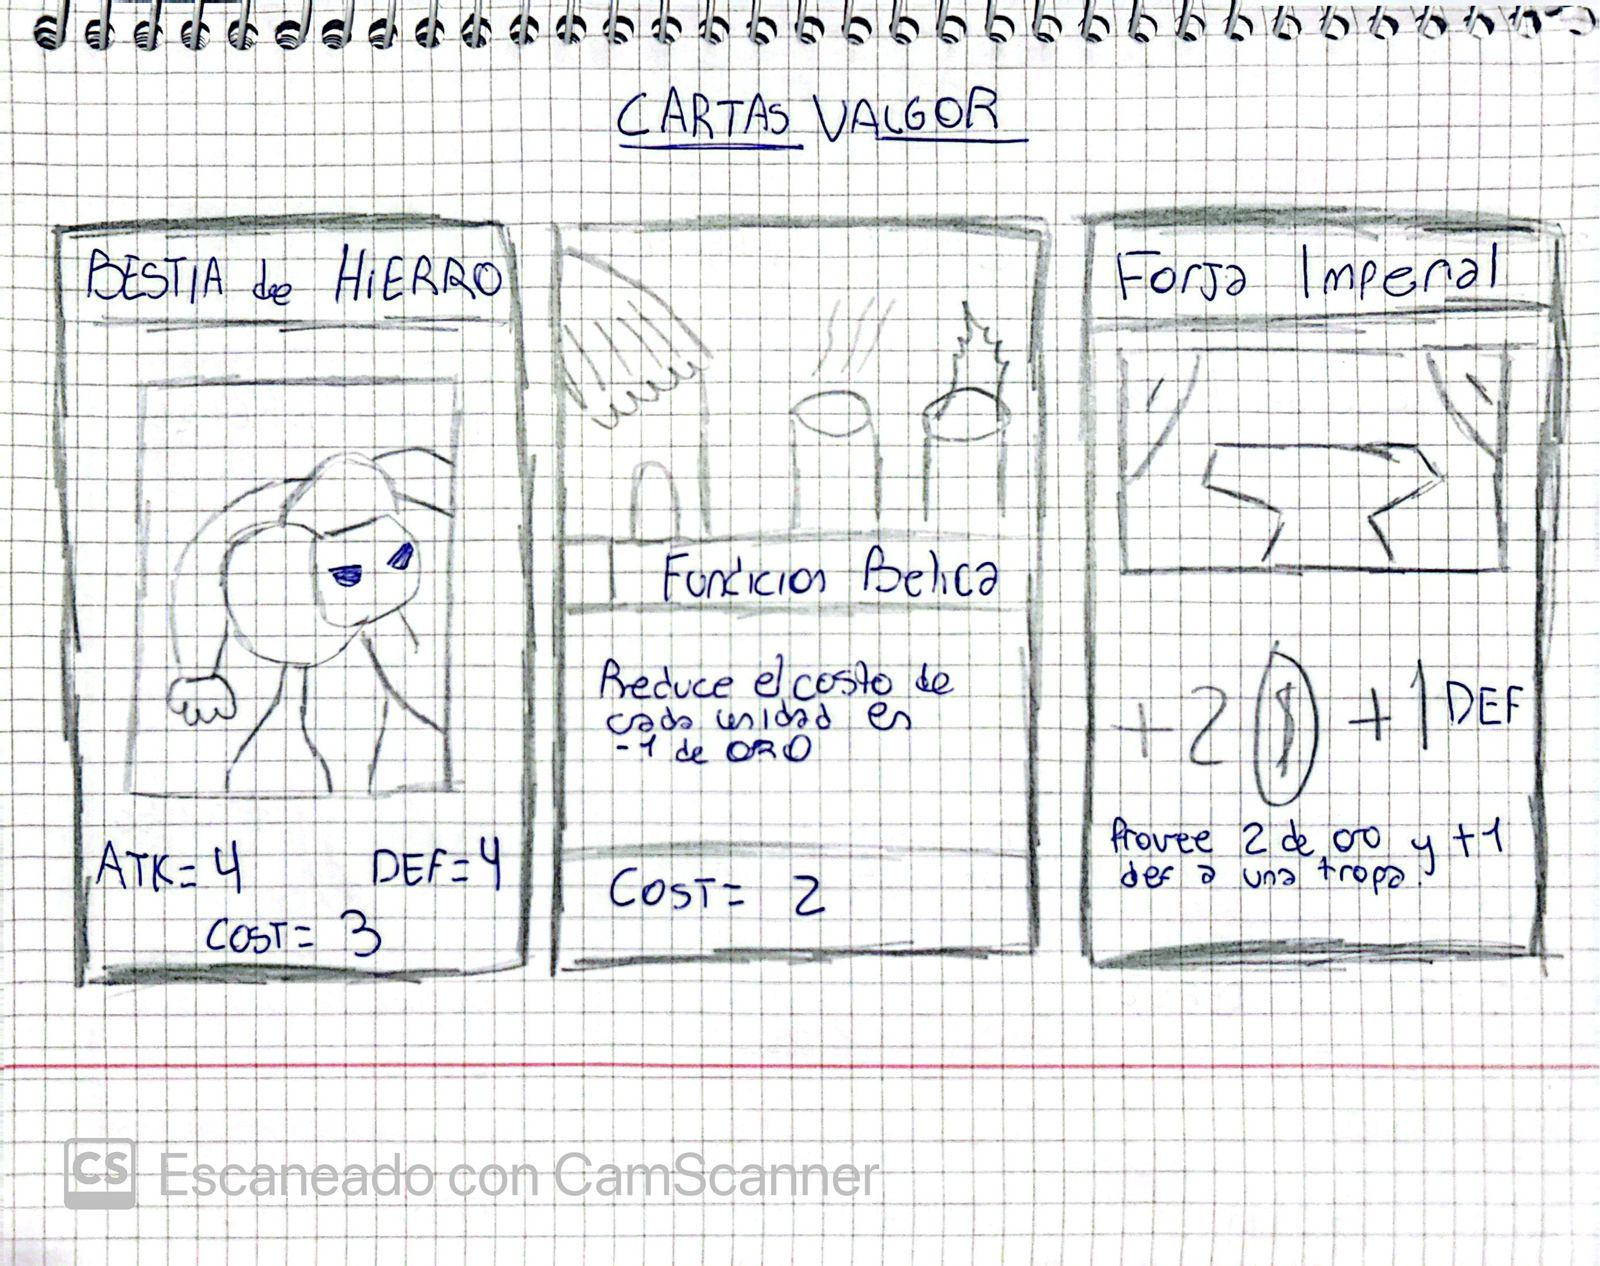 CARTAS VALGOR
BESTIA de HIERRO
ATK= 4 DEF=4
COST= 3
Fundicion Belica
Reduce el costo de
cada unidad en
-1 de ORO
COST= 2
Forja Imperial
+2 $ +1 DEF
Provee 2 de oro y +1
def a una tropa.
CS Escaneado con CamScanner